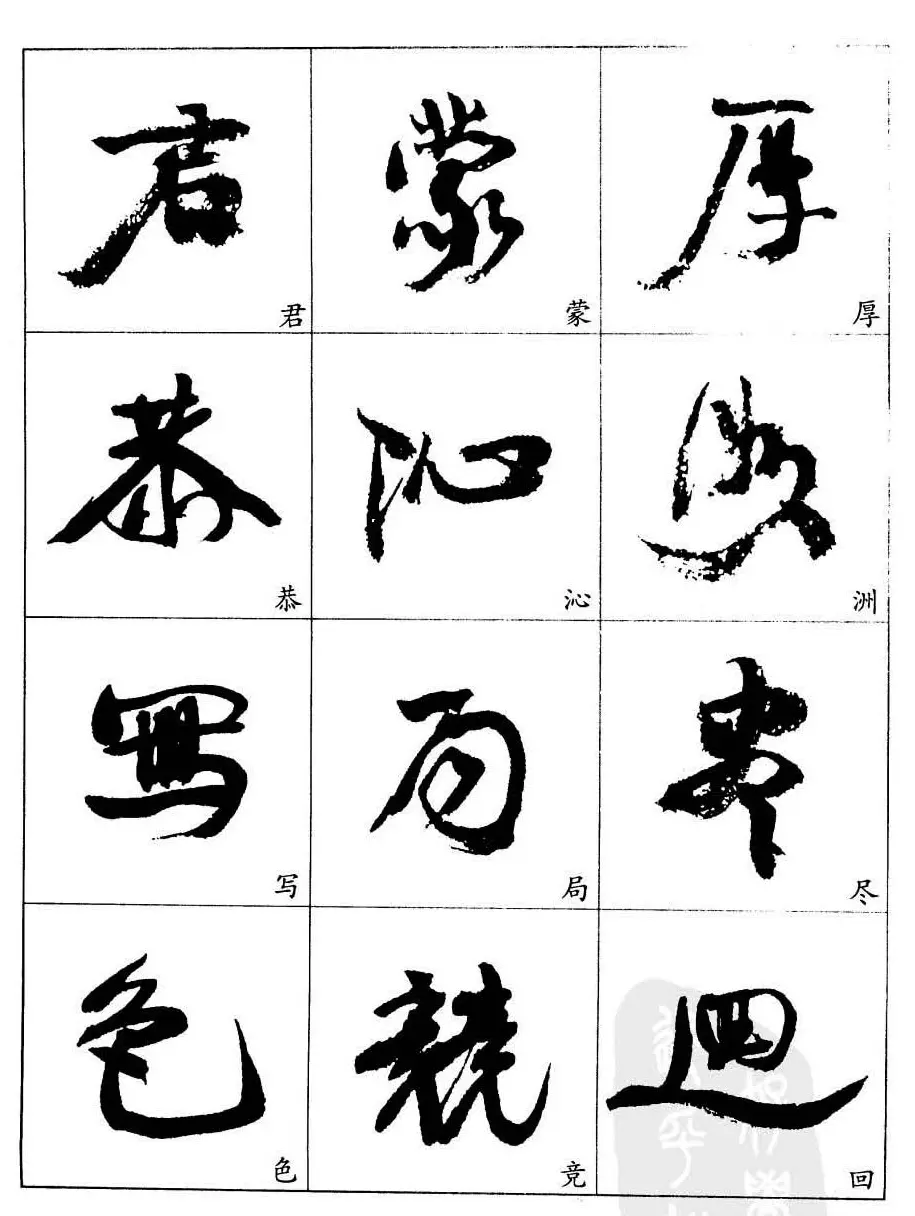 君 蒙 厚
恭 沁 洲
写 局 尽
色 竞 回